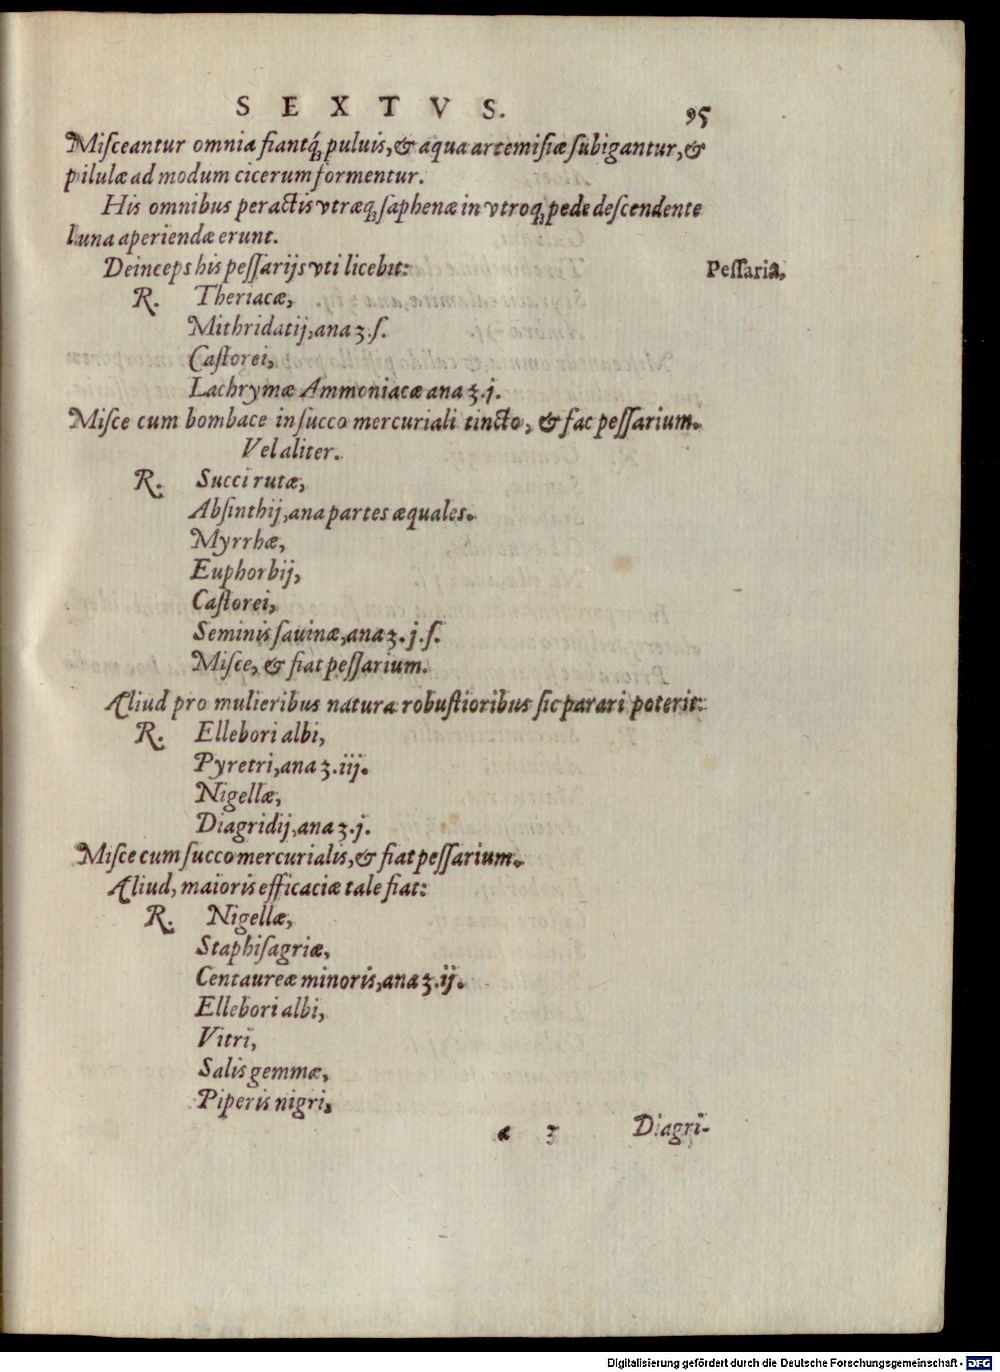 SEXTVS. 95
Miſceantur omnia fiantq́; puluis, & aqua artemiſiæ ſubigantur, &
pilulæ ad modum cicerum formentur.
His omnibus peractis vtræq; ſaphenæ in vtroq; pede deſcendente
luna aperiendæ erunt.
Deinceps his peſſarijs vti licebit: Peſſaria,
R. Theriacæ,
Mithridatij, ana ʒ.ſ.
Caſtorei,
Lachrymæ Ammoniacæ ana ʒ.j.
Miſce cum bombace in ſucco mercuriali tincto, & fac peſſarium.
Vel aliter.
R. Succi rutæ,
Abſinthij, ana partes æquales.
Myrrhæ,
Euphorbij,
Caſtorei,
Seminis ſauinæ, ana ʒ.j.ſ.
Miſce, & fiat peſſarium.
Aliud pro mulieribus natura robuſtioribus ſic parari poterit:
R. Ellebori albi,
Pyretri, ana ʒ.iij.
Nigellæ,
Diagridij, ana ʒ.j.
Miſce cum ſucco mercurialis, & fiat peſſarium.
Aliud, maioris efficaciæ tale fiat:
R. Nigellæ,
Staphiſagriæ,
Centaureæ minoris, ana ʒ.ij.
Ellebori albi,
Vitri,
Salis gemmæ,
Piperis nigri,
a 3 Diagri-
Digitalisierung gefördert durch die Deutsche Forschungsgemeinschaft - DFG